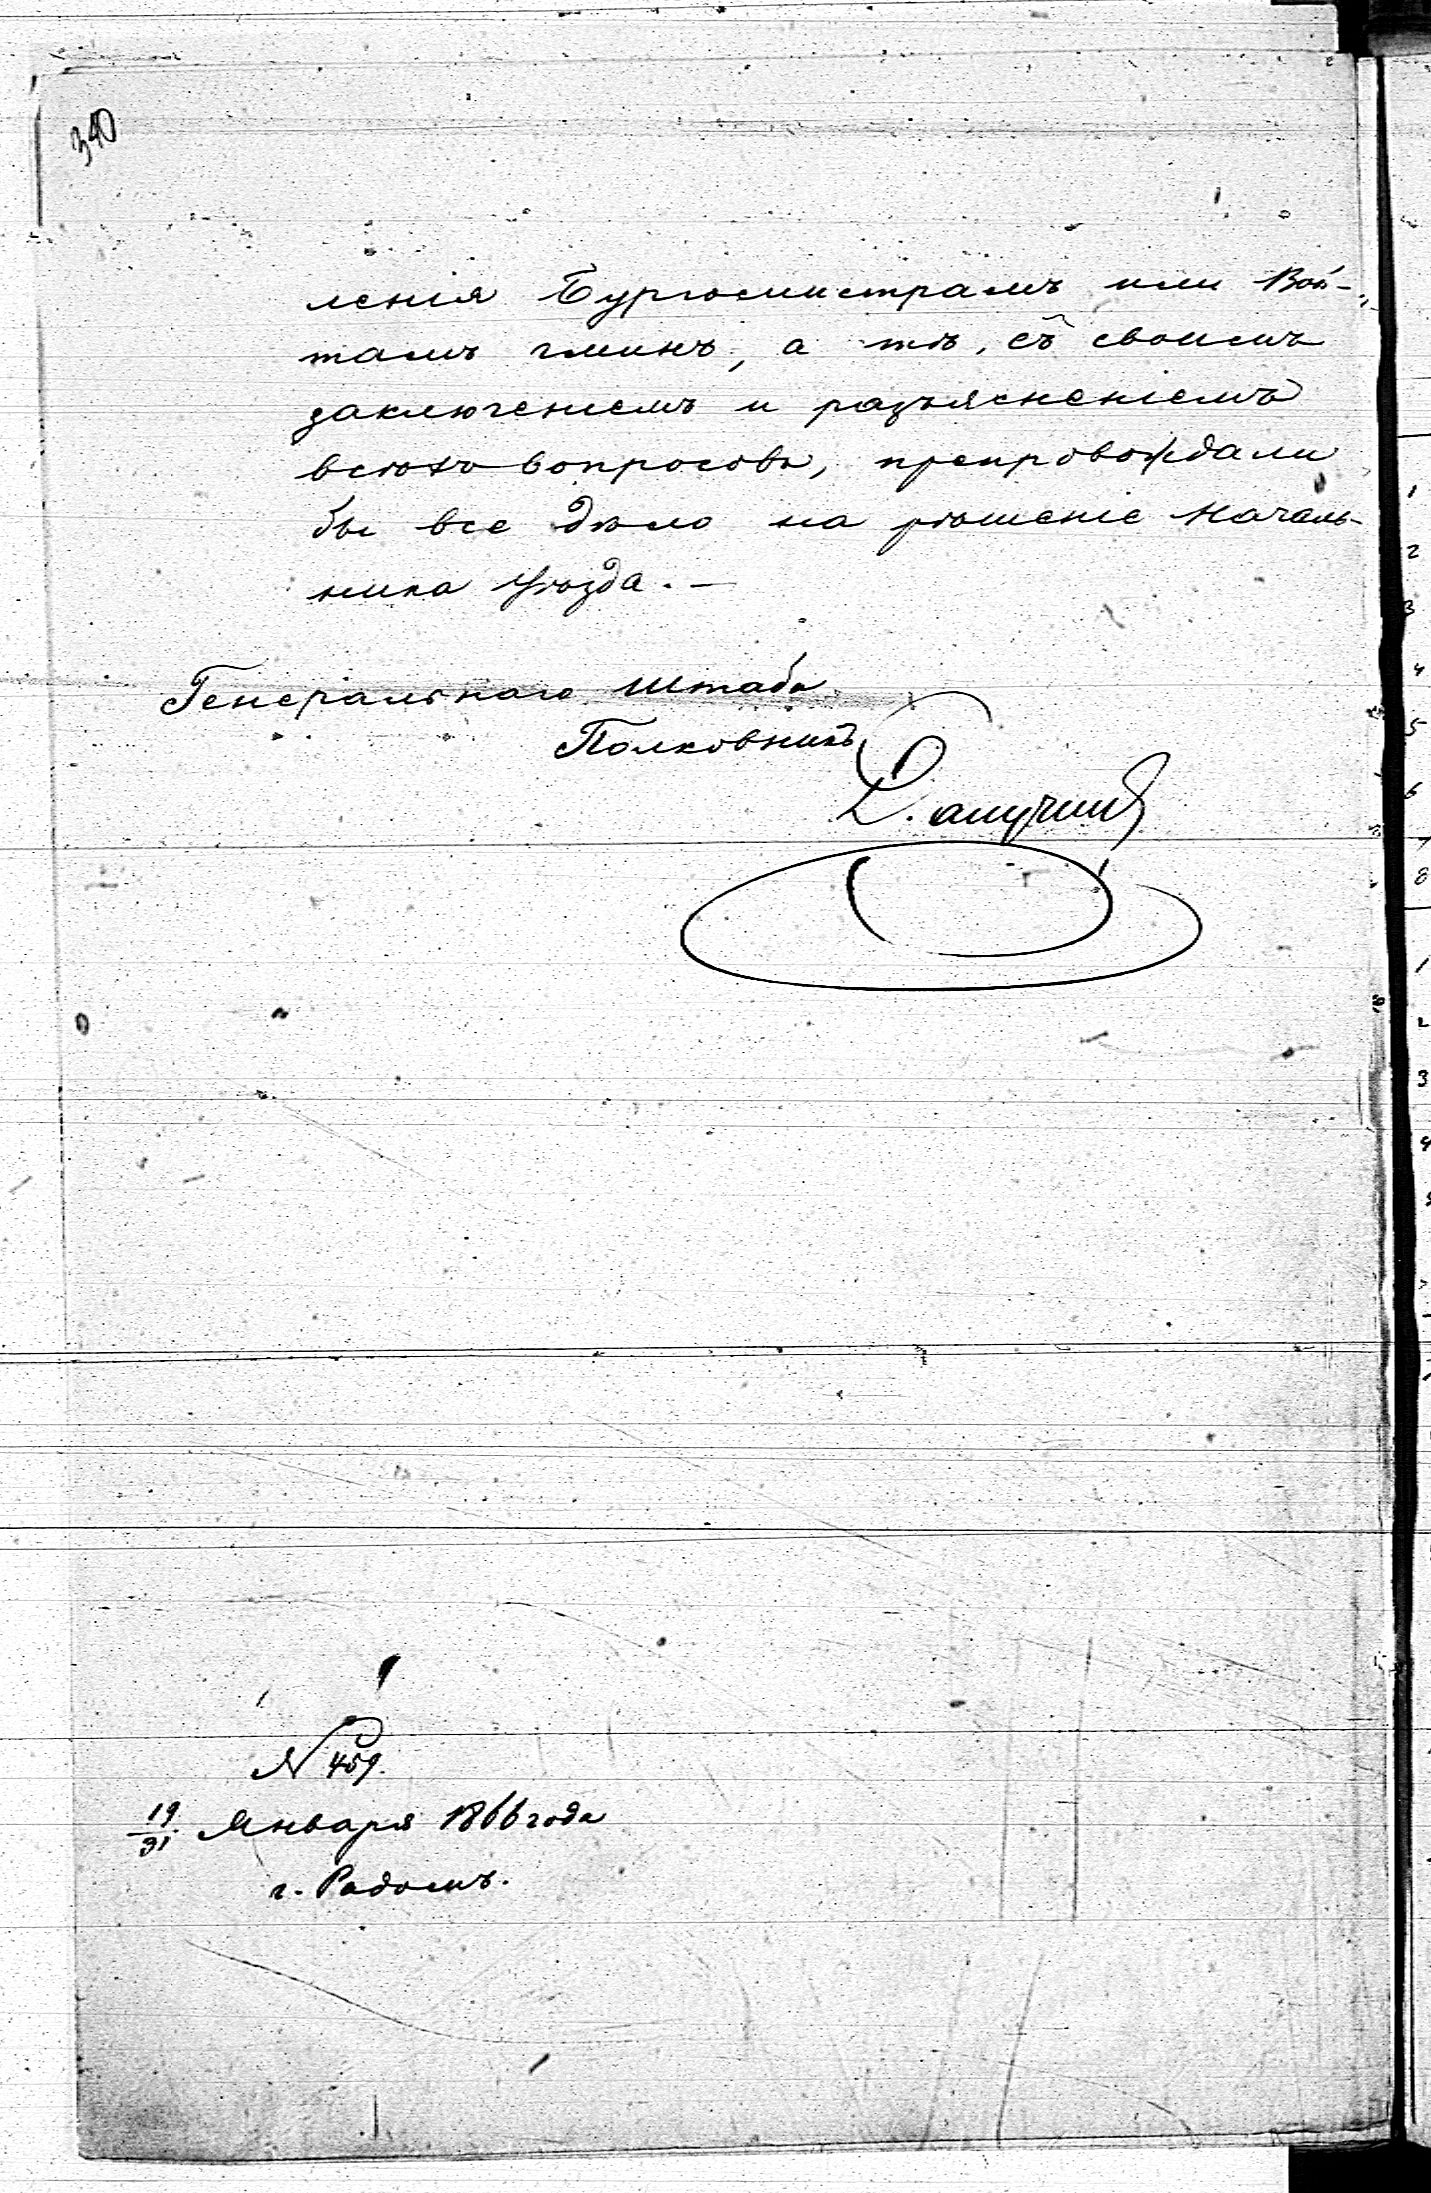 340
ленія Бургомистрамъ или Вой-
тамъ гминъ, а тѣ, съ своимъ
заключеніемъ и разъясненіемъ
всѣхъ вопросовъ, препровождали
бы все дѣло на рѣшеніе Началь-
ника Уѣзда. —
Генеральнаго Штаба
Полковникъ
№ 459.
19/31 Января 1866 года
г. Радомъ.
1
2
3
4
5
6
7
8
1
2
3
4